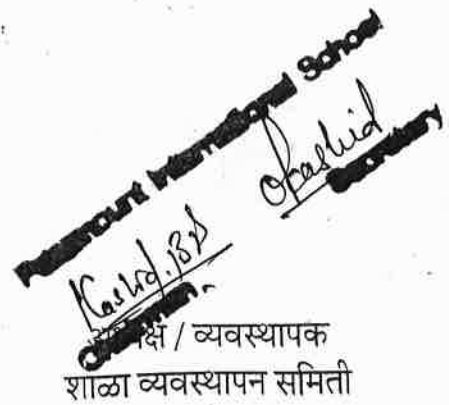 Paramount International School
Secretary
Chairman
अध्यक्ष / व्यवस्थापक
शाळा व्यवस्थापन समिती